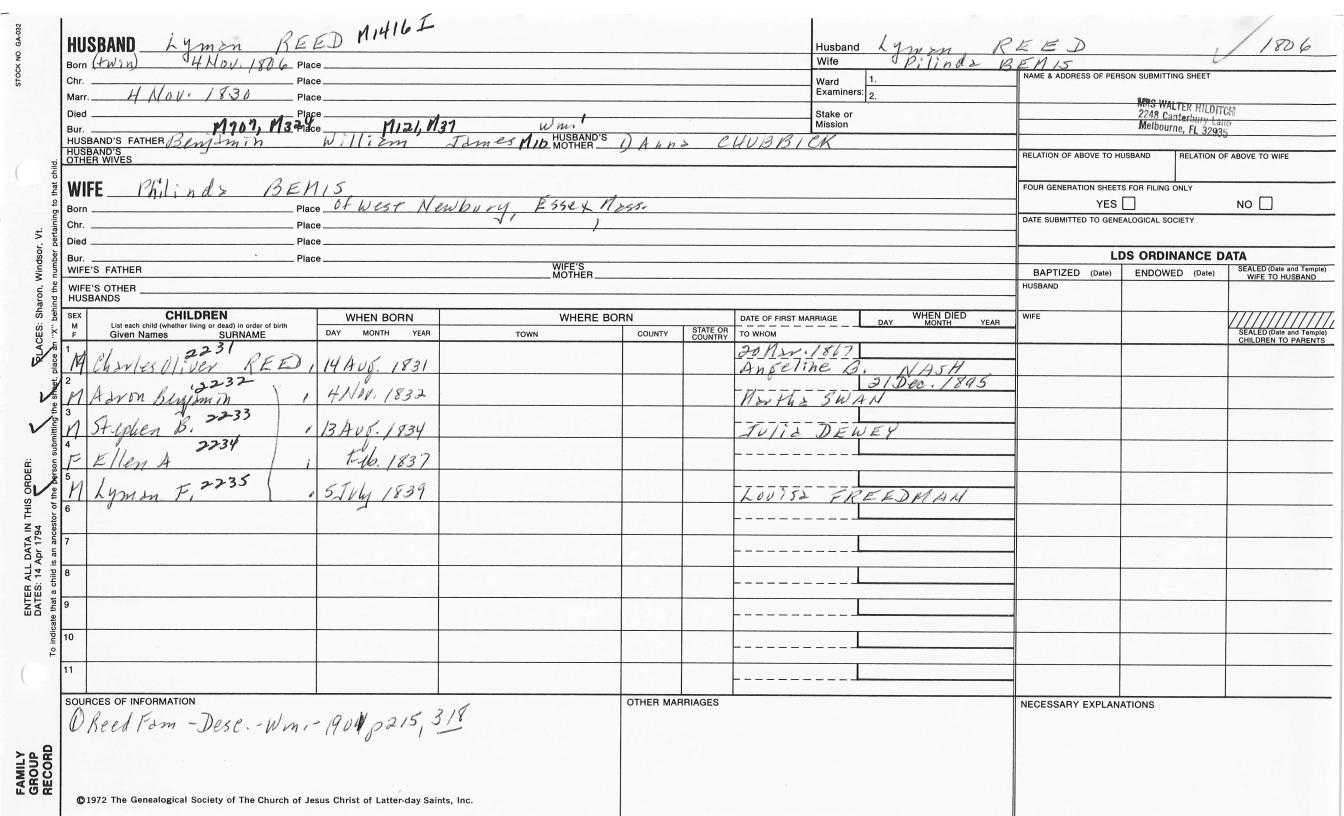 STOCK NO. GA-032
HUSBAND Lyman REED M1416 I
Born (twin) 4 Nov. 1806 Place
Chr. Place
Marr. 4 Nov. 1830 Place
Died Place
Bur. M707, M324 Place M121, M37 Wm.1
HUSBAND'S FATHER Benjamin William James M10 HUSBAND'S MOTHER Anna CHUBBICK
HUSBAND'S OTHER WIVES
Husband Lyman, REED 1806
Wife Pilinda BEMIS
Ward Examiners: 1. 2.
Stake or Mission
NAME & ADDRESS OF PERSON SUBMITTING SHEET
MRS WALTER HILDITCH
2248 Canterbury Lane
Melbourne, FL 32935
RELATION OF ABOVE TO HUSBAND RELATION OF ABOVE TO WIFE
FOUR GENERATION SHEETS FOR FILING ONLY
YES NO
DATE SUBMITTED TO GENEALOGICAL SOCIETY
WIFE Philinda BEMIS
Born Place of West Newbury, Essex, Mass.
Chr. Place
Died Place
Bur. Place
WIFE'S FATHER WIFE'S MOTHER
WIFE'S OTHER HUSBANDS
LDS ORDINANCE DATA
BAPTIZED (Date) ENDOWED (Date) SEALED (Date and Temple) WIFE TO HUSBAND
HUSBAND
WIFE
SEALED (Date and Temple) CHILDREN TO PARENTS
SEX M F CHILDREN List each child (whether living or dead) in order of birth Given Names SURNAME
WHEN BORN DAY MONTH YEAR
WHERE BORN TOWN COUNTY STATE OR COUNTRY
DATE OF FIRST MARRIAGE TO WHOM
WHEN DIED DAY MONTH YEAR
1 M Charles Oliver 2231 REED 14 Aug. 1831 20 Mar. 1867 Angeline B. NASH
2 M Aaron Benjamin 2232 4 Nov. 1832 Martha SWAN 21 Dec. 1895
3 M Stephen B. 2233 13 Aug. 1834 Julia DEWEY
4 F Ellen A 2234 Feb. 1837
5 M Lyman F. 2235 5 July 1839 Louisa FREEDMAN
6
7
8
9
10
11
SOURCES OF INFORMATION
① Reed Fam - Desc. - Wm. - 1901 p215, 318
OTHER MARRIAGES
NECESSARY EXPLANATIONS
©1972 The Genealogical Society of The Church of Jesus Christ of Latter-day Saints, Inc.
FAMILY GROUP RECORD
ENTER ALL DATA IN THIS ORDER:
DATES: 14 Apr 1794
PLACES: Sharon, Windsor, Vt.
To indicate that a child is an ancestor of the person submitting the sheet, place an "X" behind the number pertaining to that child.